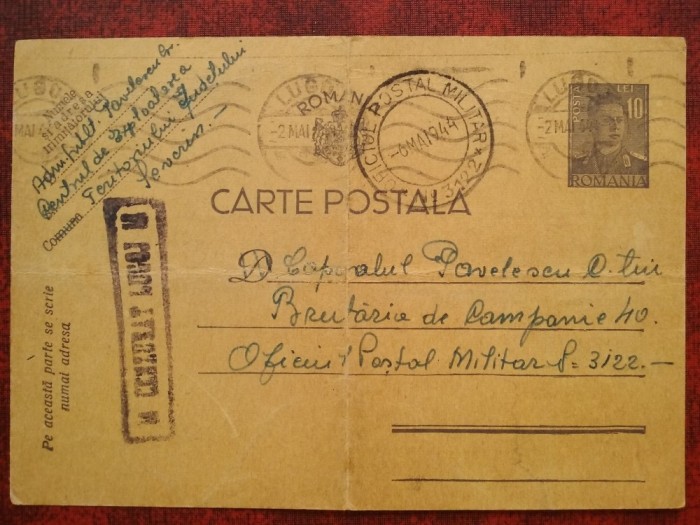 Numele
și adresa
Adm. Sublt. Pavelescu Gr.
Centrul de Exploatarea
Teritoriului Județului
Severin. —
Comuna
LUGOJ
-2 MAI
ROMANIA
OFICIUL POSTAL MILITAR
-6 MAI 1944
3122
LUGOJ
-2 MAI
POSTA
LEI
10
ROMANIA
CARTE POSTALA
CENZURAT LUGOJ
D. Caporalul Pavelescu C-tin
Brutăria de Campanie 40.
Oficiul Poștal Militar No 3122.—
Pe această parte se scrie
numai adresa